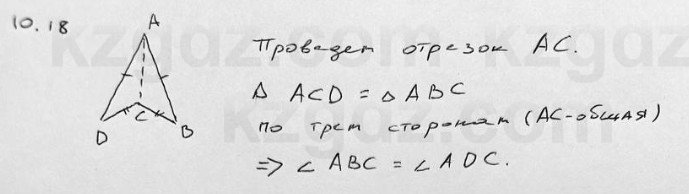 10.18
A
D
C
B
Проведем отрезок AC.
Δ ACD = Δ ABC
по трем сторонам (AC-общая)
=> ∠ ABC = ∠ ADC.
kzgaz.com
kzgaz